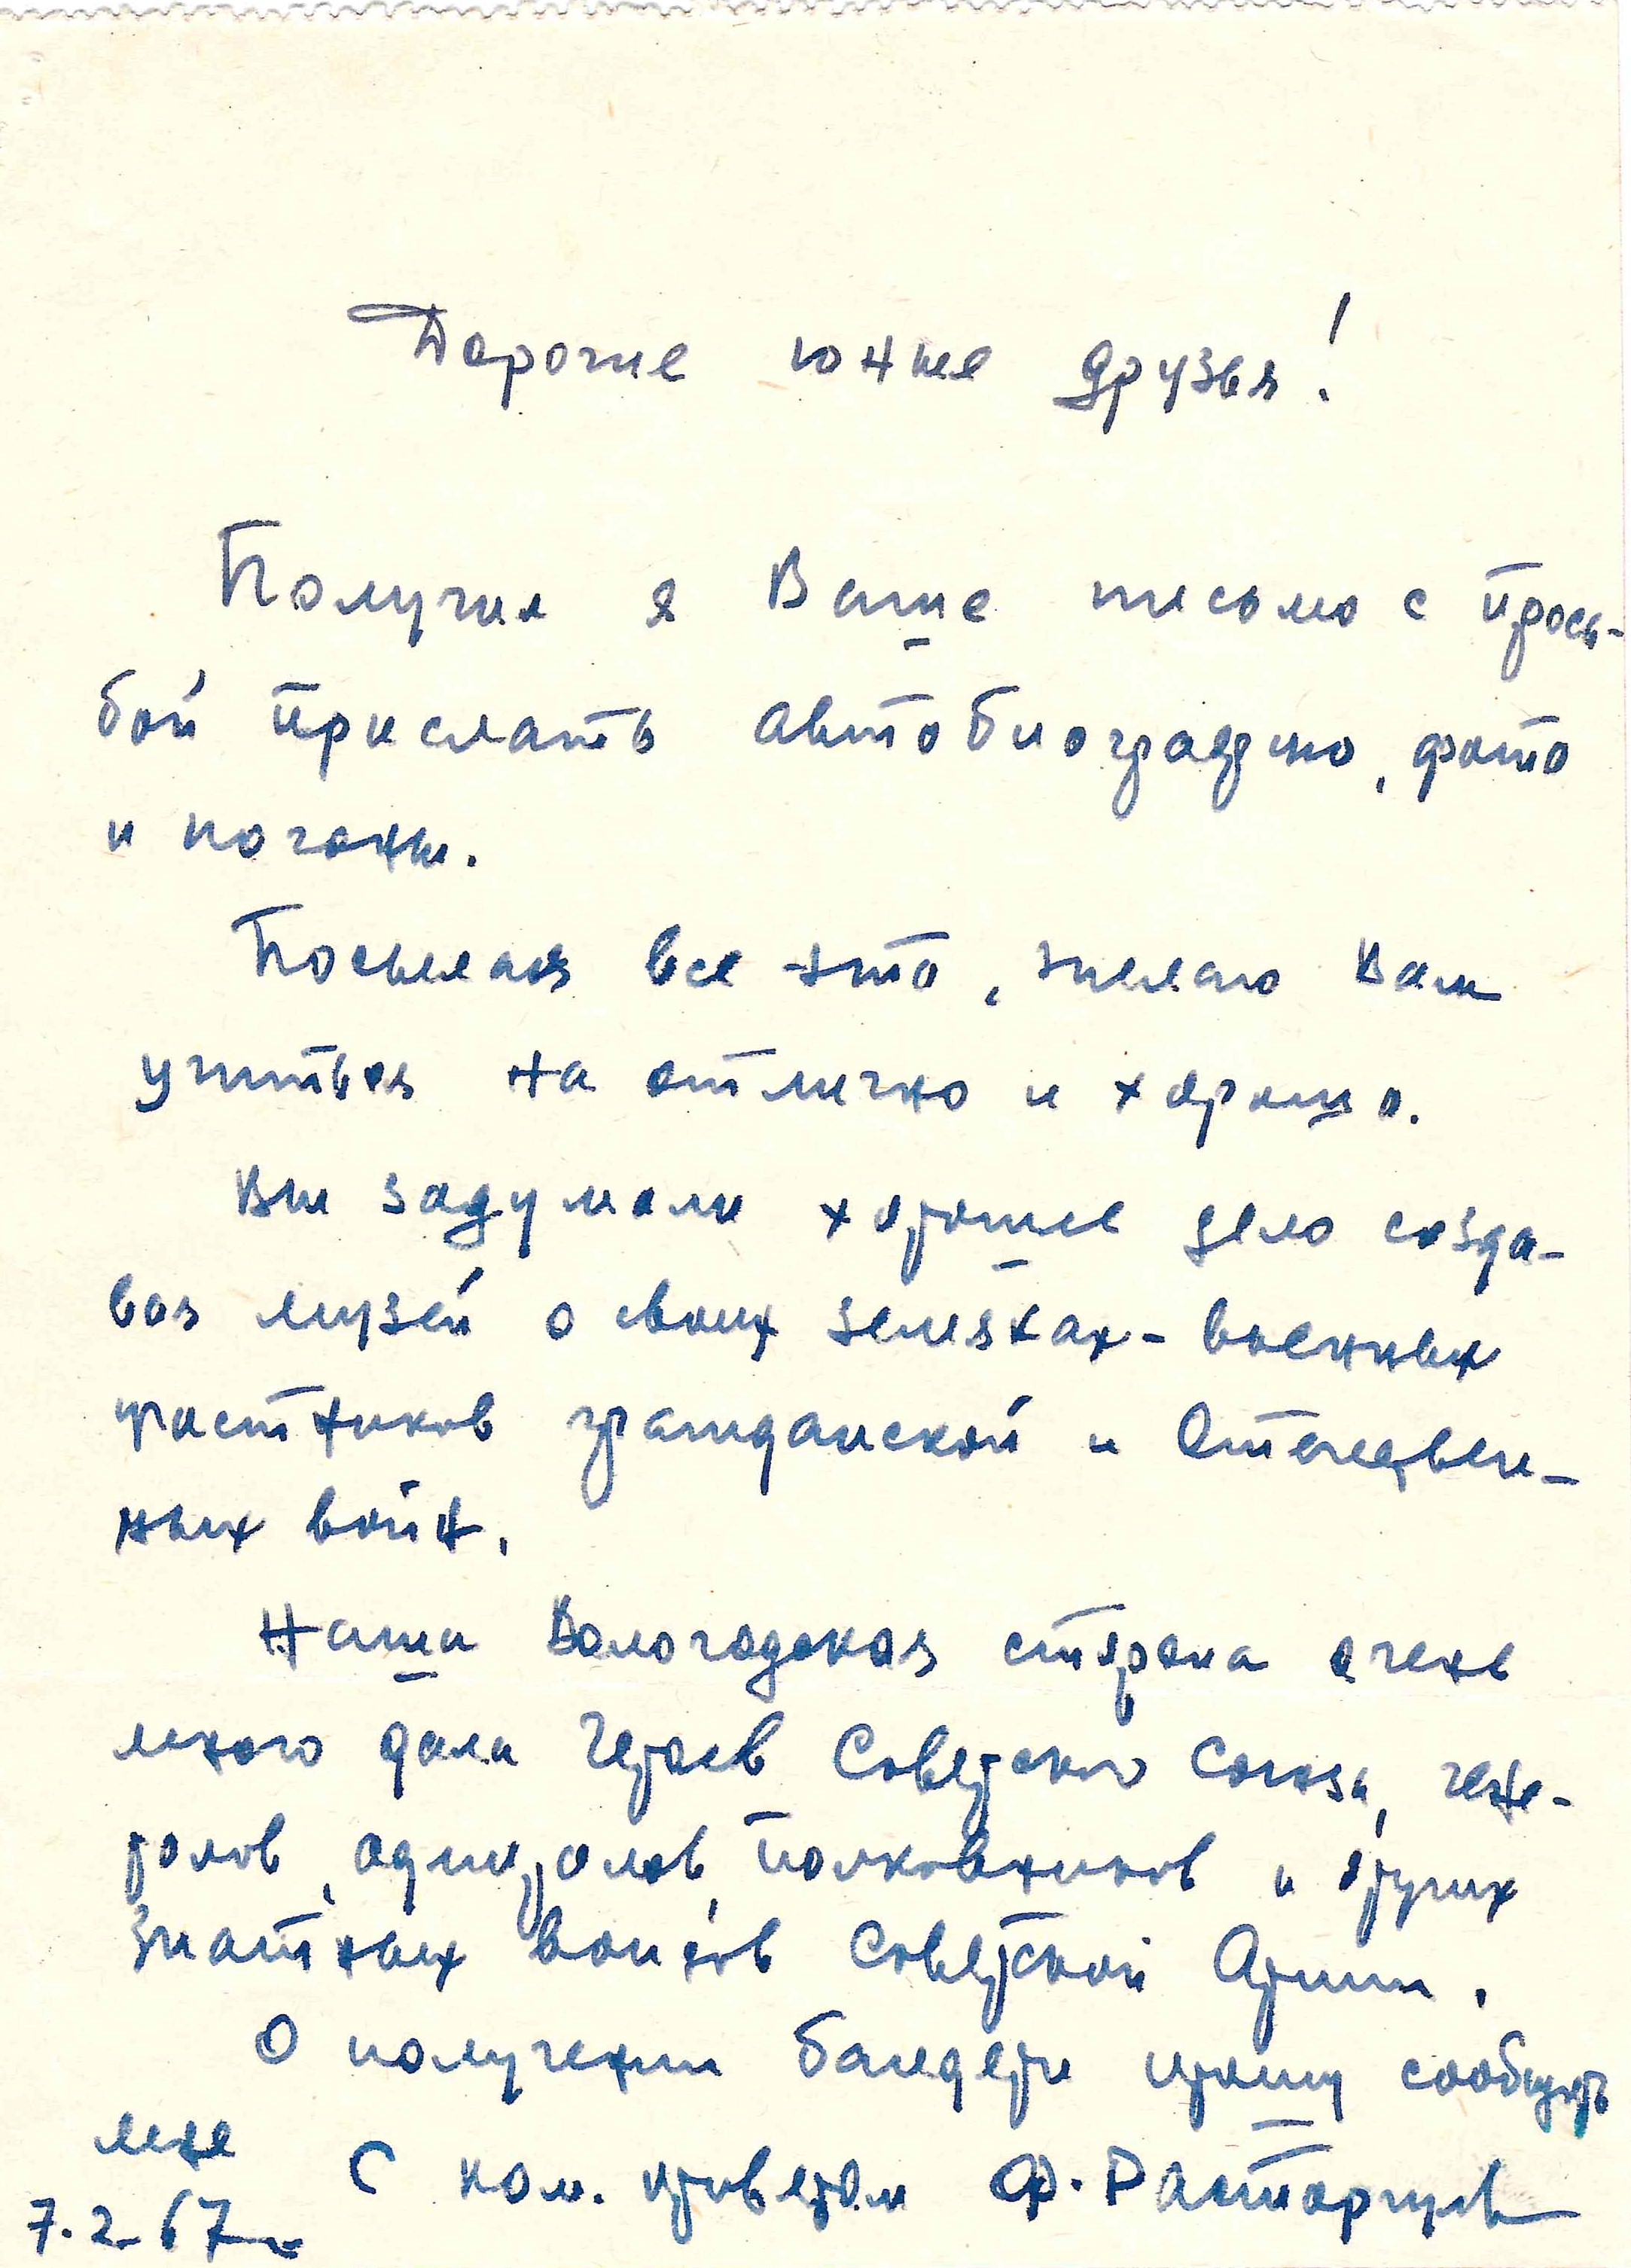 Дорогие юные друзья!
Получил я Ваше письмо с прось-
бой прислать автобиографию, фото
и погоны.
Посылая все это, желаю Вам
учиться на отлично и хорошо.
Вы задумали хорошее дело созда-
вая музей о своих земляках - военных
участников гражданской и Отечествен-
ных войн.
Наша Вологодская сторона очень
много дала Героев Советского Союза, гене-
ралов, адмиралов, полковников и других
знатных воинов Советской Армии.
О получении бандероли прошу сообщить
мне
С ком. приветом Ф. Расторгуев
7.2-67г